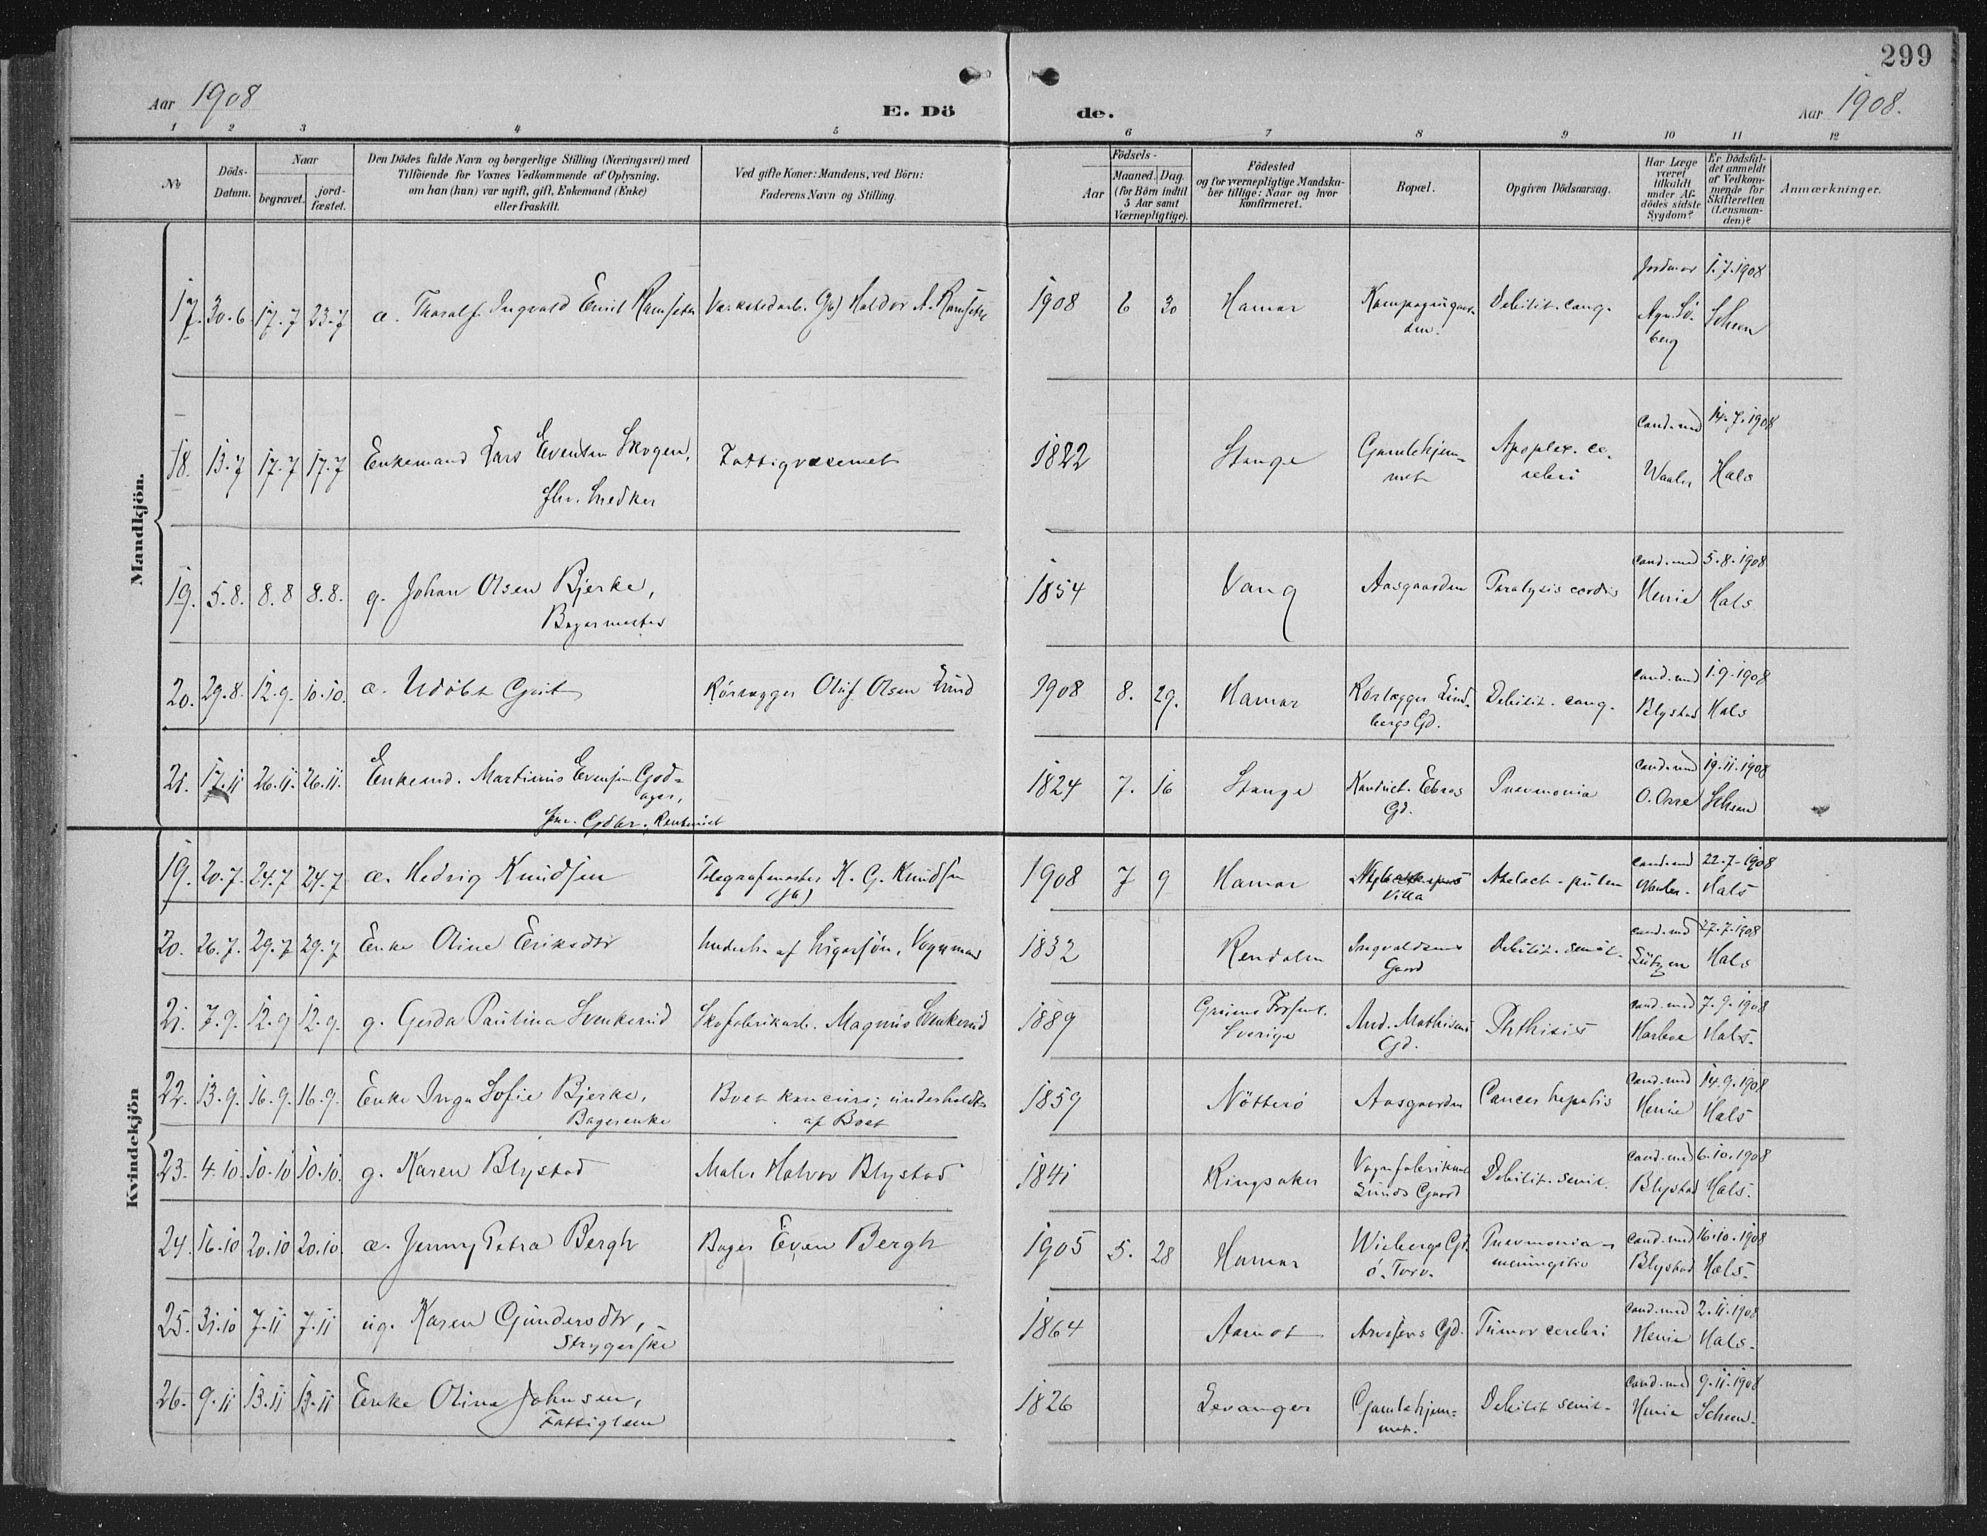 299
Aar 1908
E. Dö
de.
Aar 1908.
1 2 3 4 5 6 7 8 9 10 11 12
No
Döds-
Datum.
Naar
begravet.
jord-
fæstet.
Den Dödes fulde Navn og borgerlige Stilling (Næringsvei) med
Tilföiende for Voxnes Vedkommende af Oplysning,
om han (hun) var ugift, gift, Enkemand (Enke)
eller fraskilt.
Ved gifte Koner: Mandens, ved Börn:
Faderens Navn og Stilling.
Födsels-
Aar
Maaned. Dag.
(for Börn indtil
5 Aar samt
Værnepligtige).
Födested
og for værnepligtige Mandska-
ber tillige: Naar og hvor
konfirmeret.
Bopæl.
Opgiven Dödsaarsag.
Har Læge
været
tilkaldt
under Af-
dödes sidste
Sygdom?
Er Dödsfal-
det anmeldt
af Vedkom-
mende for
Skifteretten
(Lensman-
den)?
Anmærkninger.
Mandkjön.
17. 30.6 17.7 23.7 æ. Thoralf Ingvald Emil Ramseter Værkstedarb. (Jb) Haldor A. Ramseter 1908 6 30 Hamar Debilit. cong. Jordmor Agn. Söberg 1.7.1908 Scheen
18. 13.7 17.7 17.7 Enkemand Lars Evensen Skogen, Fattigvæsenet 1822 Stange Gamlehjem-
met Apoplex. ce-
rebri cand. med Waaler 14.7.1908 Hals
fhv. Snedker
19. 5.8. 8.8 8.8. g. Johan Olsen Bjerke, 1854 Vang Aasgaarden Paralysis cordis cand. med Henie 5.8.1908 Hals
Bagermester
20. 29.8. 12.9. 10.10. æ. Udöbt Gut Rörlægger Oluf Olsen Lund 1908 8. 29. Hamar Rörlægger Lind-
bergs Gd. Debilit. cong. cand. med Blystad 1.9.1908 Hals
21. 17.11 26.11. 26.11. Enkemd. Martinus Evensen God-
ager, 1824 7. 16 Stange Gd. Pneumonia cand. med O. Osse 19.11.1908 Scheen
fhv. Gdbr. Rentenist
Kvindekjön
19. 20.7 24.7 24.7 æ. Hedvig Knudsen Telegrafmester K. G. Knudsen 1908 7 9 Hamar Villa Atelect. pulm cand. med Waaler. 22.7.1908 Hals
20. 26.7. 29.7 29.7 Enke Oline Eriksdtr Underh. af Svigersön, Vognmand 1832 Rendalen Ingvaldsens
Gaard Debilit. senil. cand. med Lützen 27.7.1908 Hals
21. 7.9. 12.9 12.9. g. Gerda Paulina Svenkerud Skofabrikarb. Magnus Svenkerud 1889 Sverige And. Mathisens
Gd. Phthisis cand. med Harboe 7.9.1908 Hals.
22. 13.9. 16.9. 16.9. Enke Inga Sofie Bjerke, Boet konkurs; underholdt
af Boet 1859 Nötterö Aasgaarden Cancer hepatis cand. med Henie 14.9.1908 Hals
Bagerenke
23. 4.10. 10.10 10.10. g. Karen Blystad Maler Halvor Blystad 1841 Ringsaker Vognfabrikant
Lunds Gaard Debilit. senil. cand. med Blystad 6.10.1908 Hals.
24. 16.10 20.10 20.10. æ. Jenny Petra Bergh Bager Even Bergh 1905 5. 28 Hamar Wiebergs Gd.
ö. Torv. Pneumonia-
meningitis cand. med Blystad 16.10.1908 Hals.
25. 31.10 7.11 7.11 ug. Karen Gundersdtr, 1864 Aamot Arnesens Gd. Tumor cerebri cand. med Henie 2.11.1908 Hals.
Strygerske
26. 9.11 13.11 13.11 Enke Oline Johnsen, 1826 Levanger Gamlehjem-
met. Debilit senil. cand. med Henie 9.11.1908 Scheen.
Fattiglem